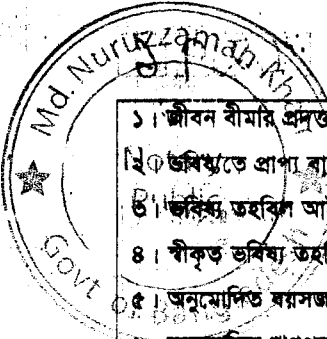 Md. Nuruzzaman Kh
Govt of
১। জীবন বীমার প্রদত্ত
২। ভবিষ্যতে প্রাপ্য বা
৩। ভবিষ্য তহবিল আ
৪। স্বীকৃত ভবিষ্য তহবি
৫। অনুমোদিত বয়সজ